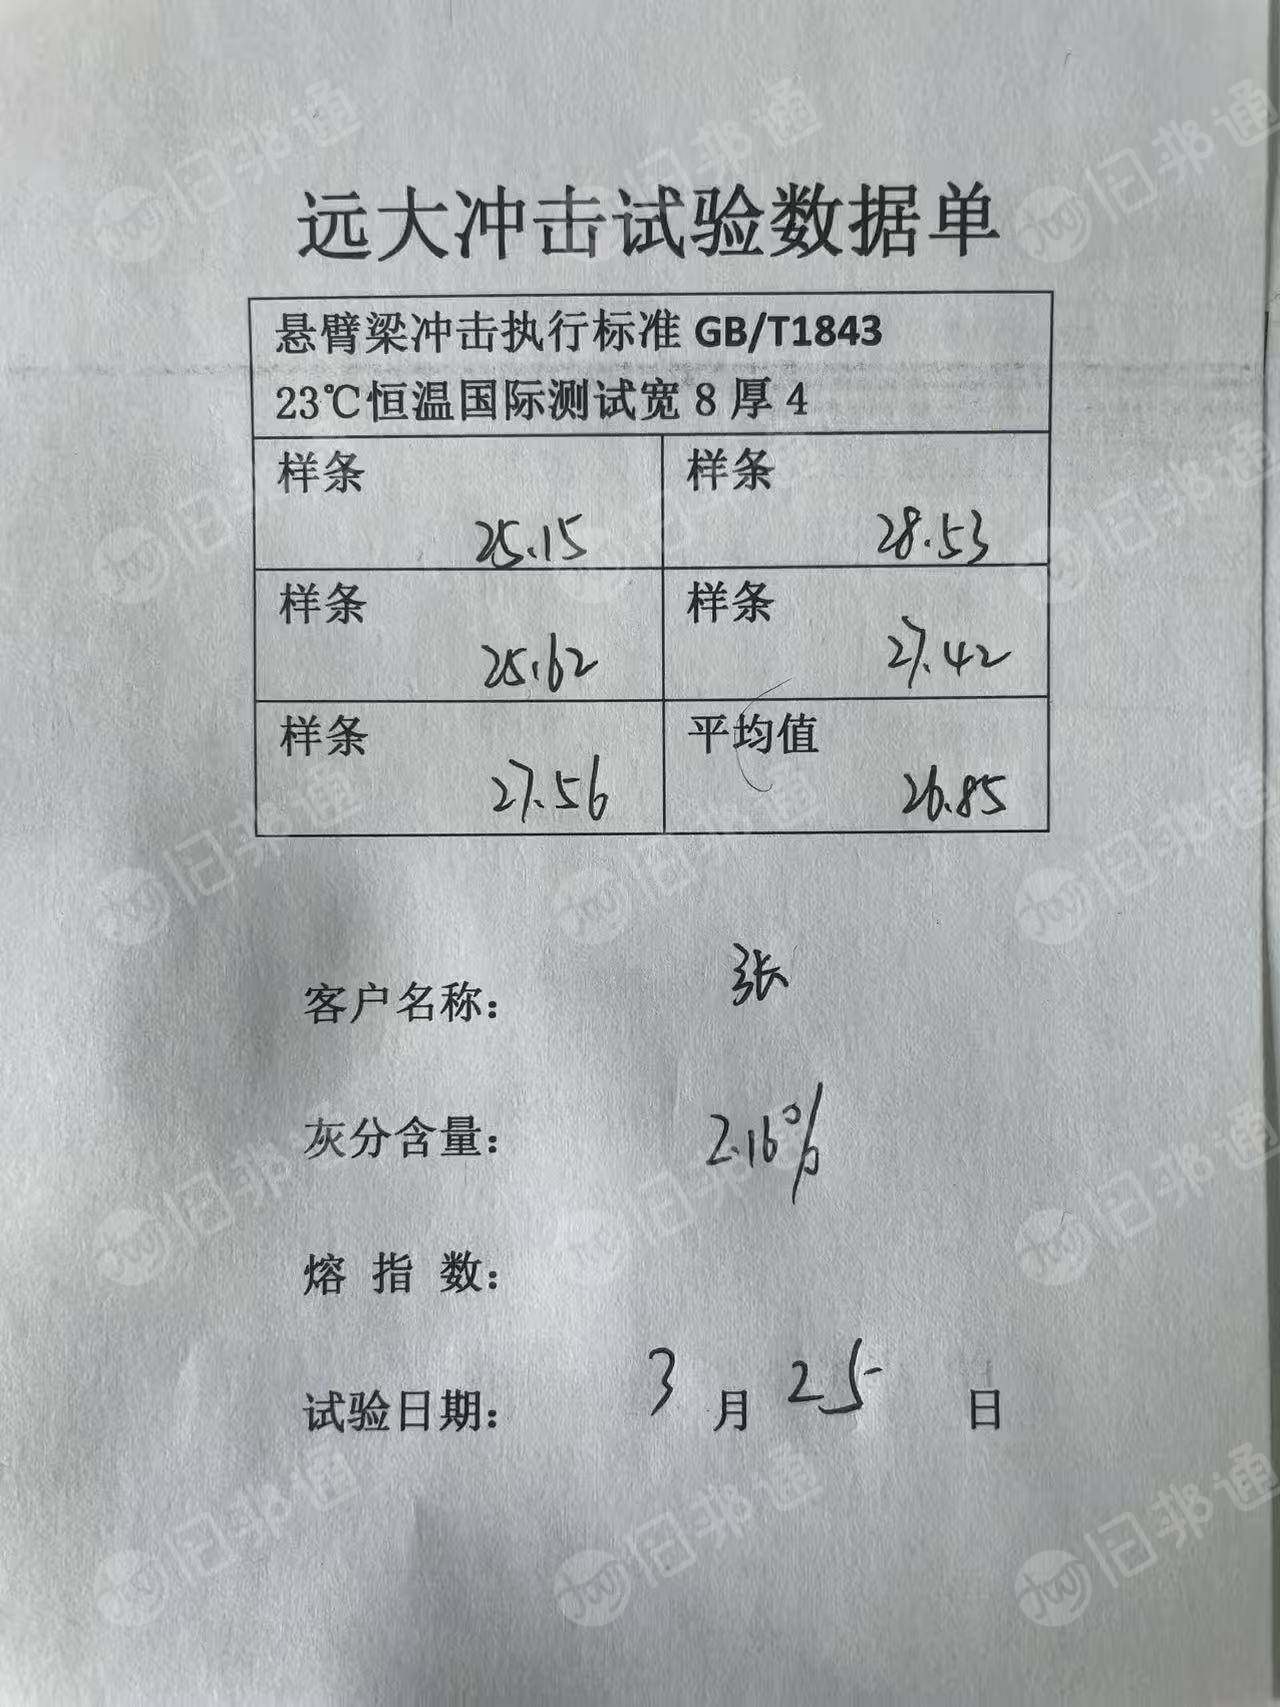 远大冲击试验数据单
悬臂梁冲击执行标准 GB/T1843
23℃恒温国际测试宽 8 厚 4
样条 样条
25.15 28.53
样条 样条
25.62 27.42
样条 平均值
27.56 26.85
客户名称： 张
灰分含量： 2.16%
熔 指 数：
试验日期： 3 月 25 日
旧邦通